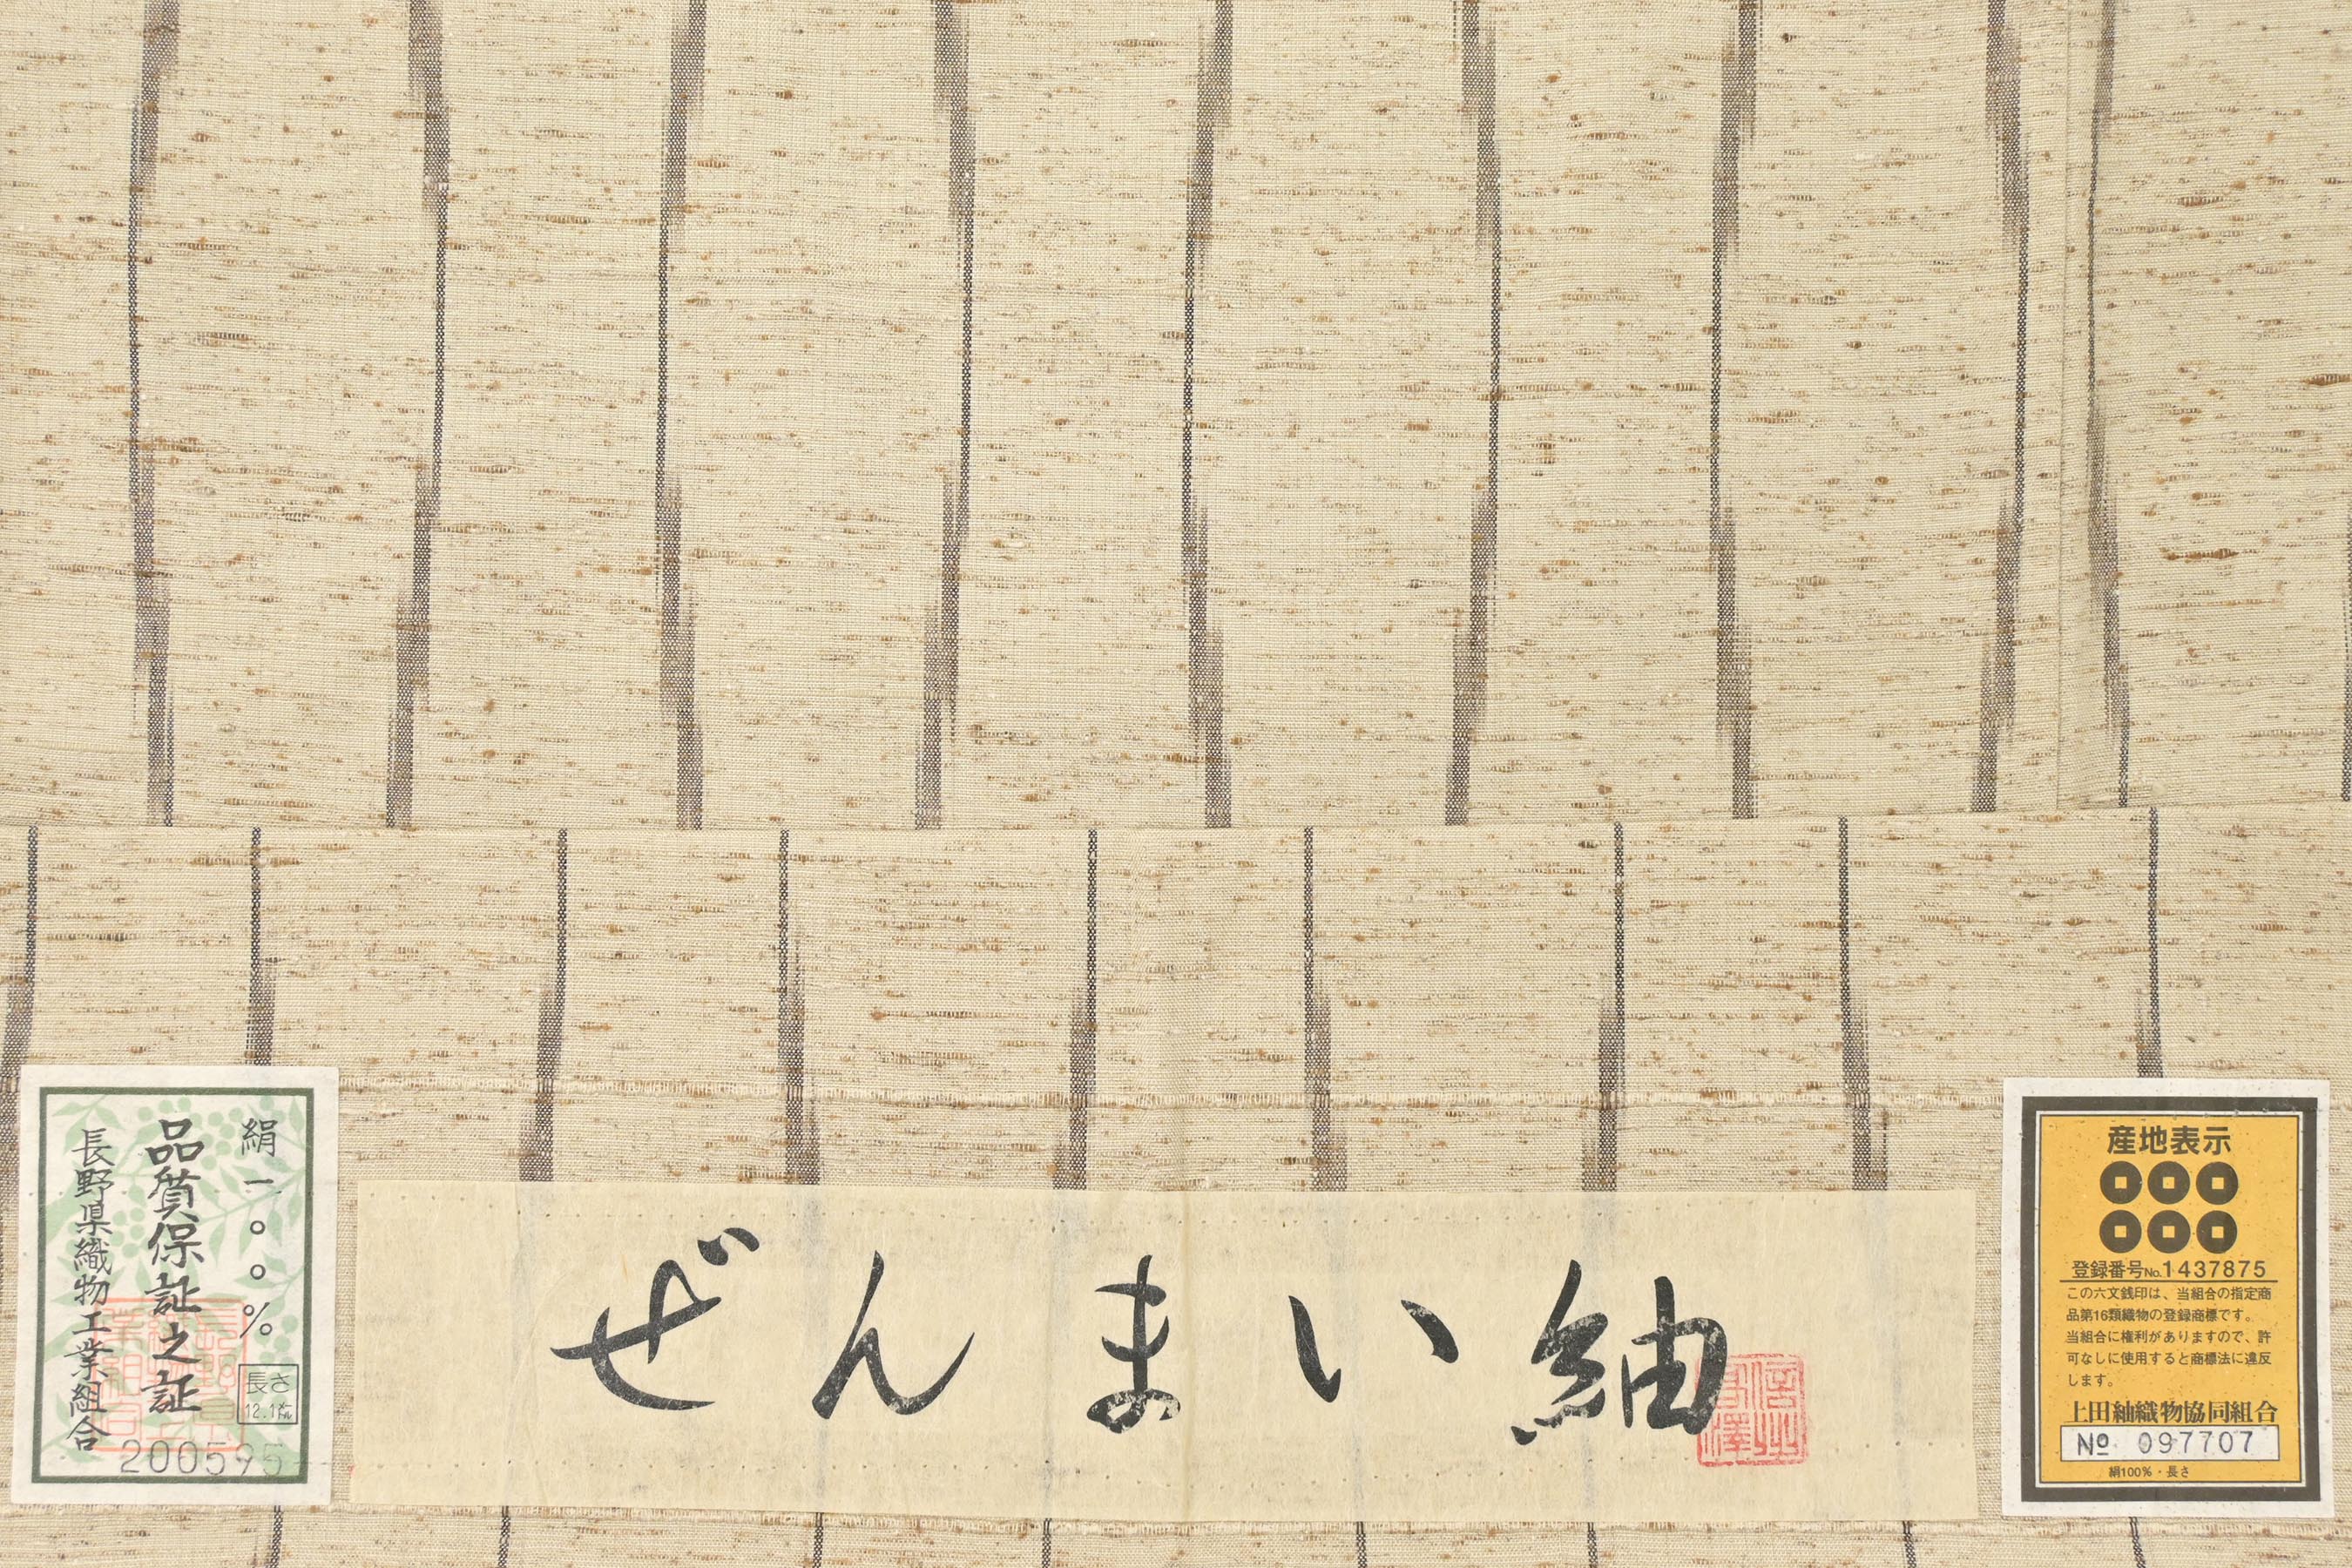 絹一〇〇%
品質保証之証
長野県織物工業組合
長さ
12.1㍍
200595
ぜんまい紬
産地表示
登録番号No.1437875
この六文銭印は、当組合の指定商
品第16類織物の登録商標です。
当組合に権利がありますので、許
可なしに使用すると商標法に違反
します。
上田紬織物協同組合
No 097707
絹100%・長さ